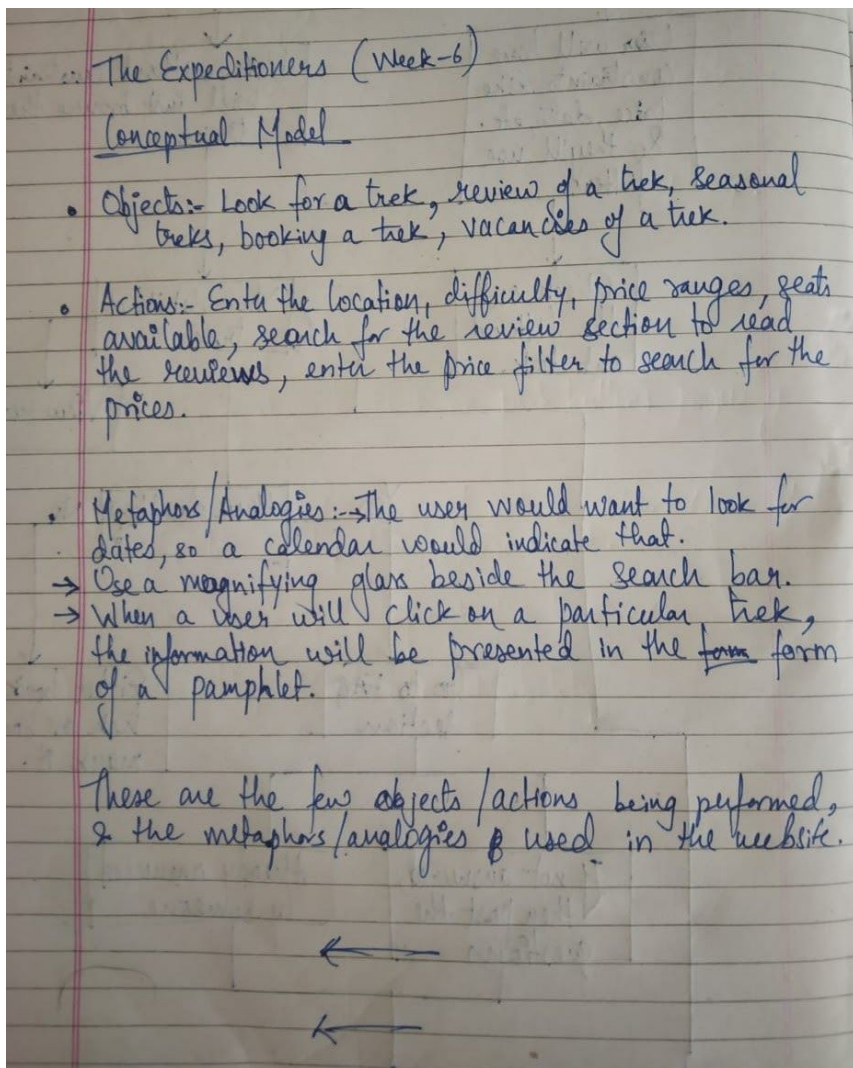 The Expeditioners (Week-6)
Conceptual Model
• Objects:- Look for a trek, review of a trek, seasonal
treks, booking a trek, vacancies of a trek.
• Actions:- Enter the location, difficulty, price ranges, seats
available, search for the review section to read
the reviews, enter the price filter to search for the
prices.
• Metaphors/Analogies:→The user would want to look for
dates, so a calendar would indicate that.
→ Use a magnifying glass beside the search bar.
→ When a user will click on a particular trek,
the information will be presented in the form form
of a pamphlet.
These are the few objects/actions being performed,
& the metaphors/analogies used in the website.